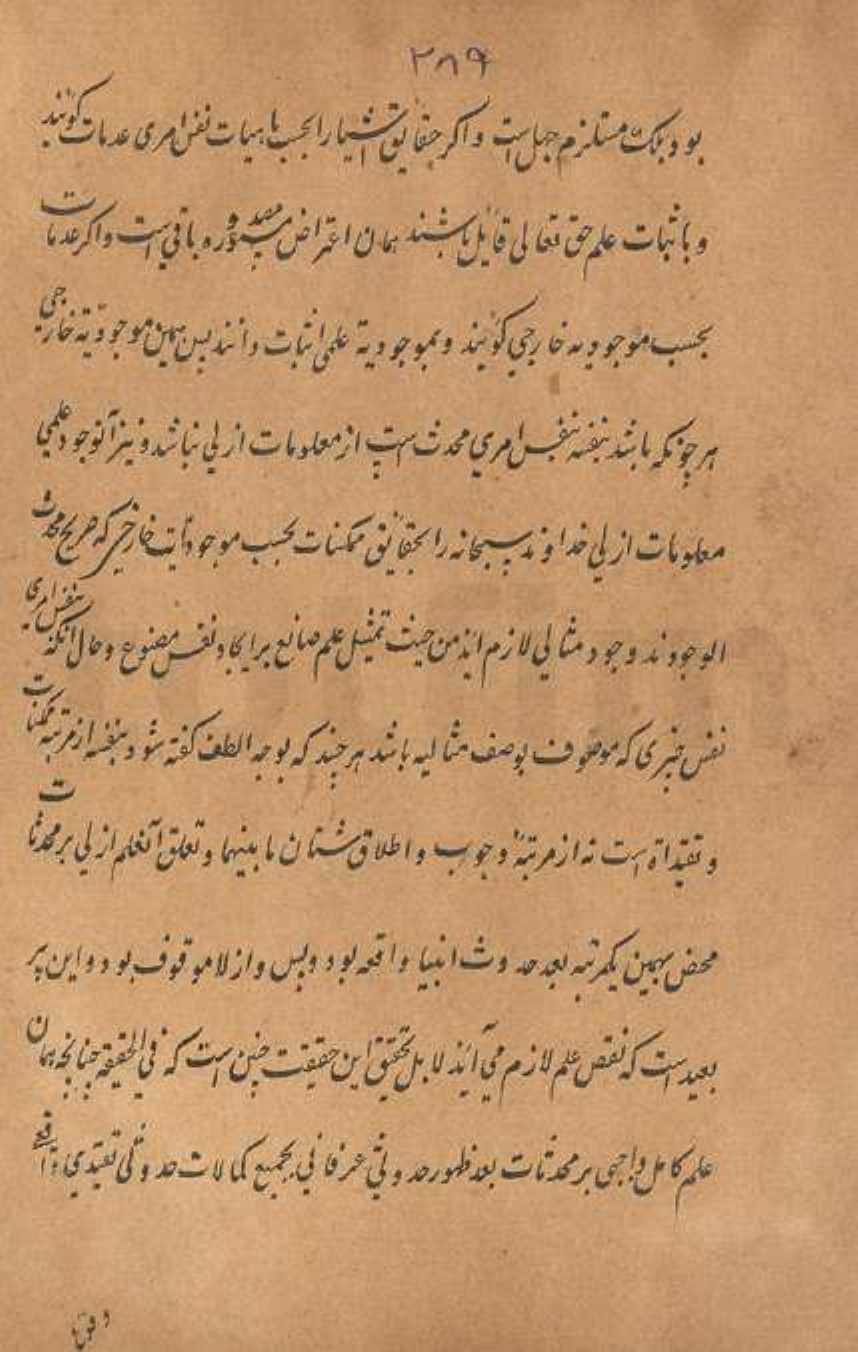 ۲۸۹
بود و بلک مستلزم جهل است و اکر حقایق اشیا را بحسب ماهیات نفس امری عدمات کویند
و باثبات علم حق تعالی قایل باشند همان اعتراض مسوره باقی است و اکر عدمات
بحسب موجودیه خارجی کویند و بموجودیة علمی اثبات دانند پس همین موجودیة خارجی
هر چونکه باشد بنفسه بنفس امری محدث است از معلومات ازلی نباشد و نیز آنوجود علمی
معلومات ازلی خداوند سبحانه را بحقایق ممکنات بحسب موجودات خارجی که صریح محدث
الوجودند وجود مثالی لازم اید من حیث تمثیل علم صانع بر ایجاد نفس مصنوع و حال انکه بنفس امری
نفس چیزی که موصوف بوصف مثالیه باشد هر چند که بوجه الطف کفته شود بنفسه از مرتبه ممکنات
و تقیداة است نه از مرتبهٔ وجوب و اطلاق شتان ما بینهما و تعلق آنعلم ازلی بر محدثات
محض بهمین یکمرتبه بعد حدوث اشیا واقعه بود و بس و ازلا موقوف بود و این پر
بعید است که نقص علم لازم می آید لا بل تحقیق این حقیقت چنین است که فی الحقیقة چنانچه همان
علم کامل واجبی بر محدثات بعد ظهور حدوثی عرفانی بجمیع کمالات حدوثی تقیدی واقع